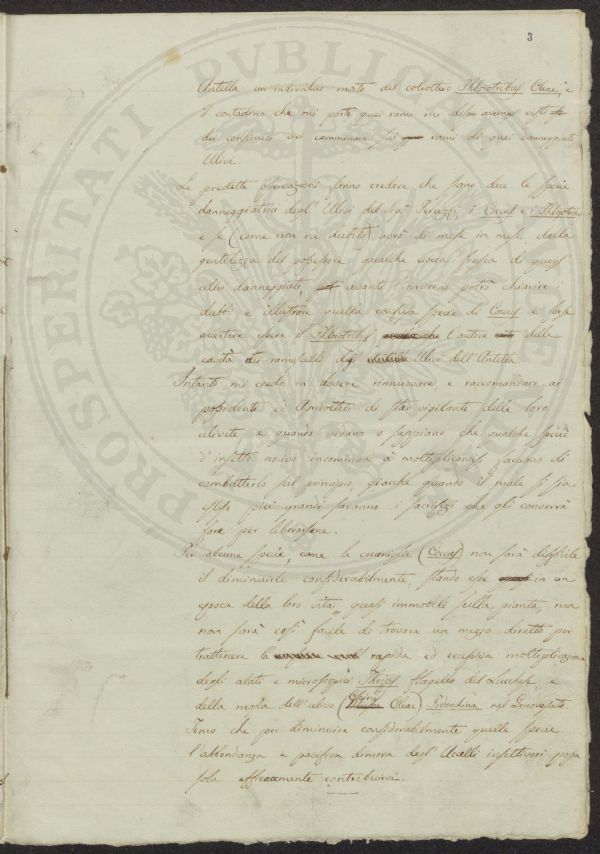 3
Antella un individuo morto del coleottero Phloiotribus Oleae, e
il contadino che mi portò quei rami mi disse averne visti
dei consimili camminare sui rami di quei danneggiati
Ulivi.
Le predette osservazioni fanno credere che siano due le specie
danneggiatrici degl' Ulivi del Sig.r Peruzzi, i Coccus e i Phloiotribus
e se (come non ne dubito) avrò di mese in mese dalla
gentilezza del possessore qualche ciocca fresca di quegl'
ulivi danneggiati, avanti l' inverno potrò chiarire i
dubbi e illustrare quella confusa specie di Coccus e forse
accertare essere il Phloiotribus l' autore delle
cavità dei ramuscelli degl' Ulivi dell' Antella.
Intanto mi credo in dovere rinnuovare, e raccomandare ai
possidenti ed Agricoltori di star vigilante delle loro
ulivete e quando vedano o sappiano che qualche specie
d' insetti nocivo incomincia à moltiplicarsi, facciano di
combatterlo sul principio, giacche quanto il male si sia
esteso più grandi saranno i sacrifizi che gli converrà
fare per liberarsene.
Per alcune specie, come le cocciniglie (Coccus) non sarà difficile
il diminuirle considerabilmente, stando esse in un
epoca della loro vita, quasi immobili sulla pianta, ma
non sarà così facile di trovare un mezzo diretto per
trattenere la rapida ed eccessiva moltiplicazione
degli alati e microscopici Thrips flagello del Lucchese, e
della mosca dell' ulivo ( Oleae) Pidocchina nel Genovesato.
Tengo che per diminuire considerabilmente quelle specie
l' abbondanza e pacifica dimora degl' Ucelli insettivori possa
sola efficacemente contribuirvi.
PROSPERITATI PVBLICAE